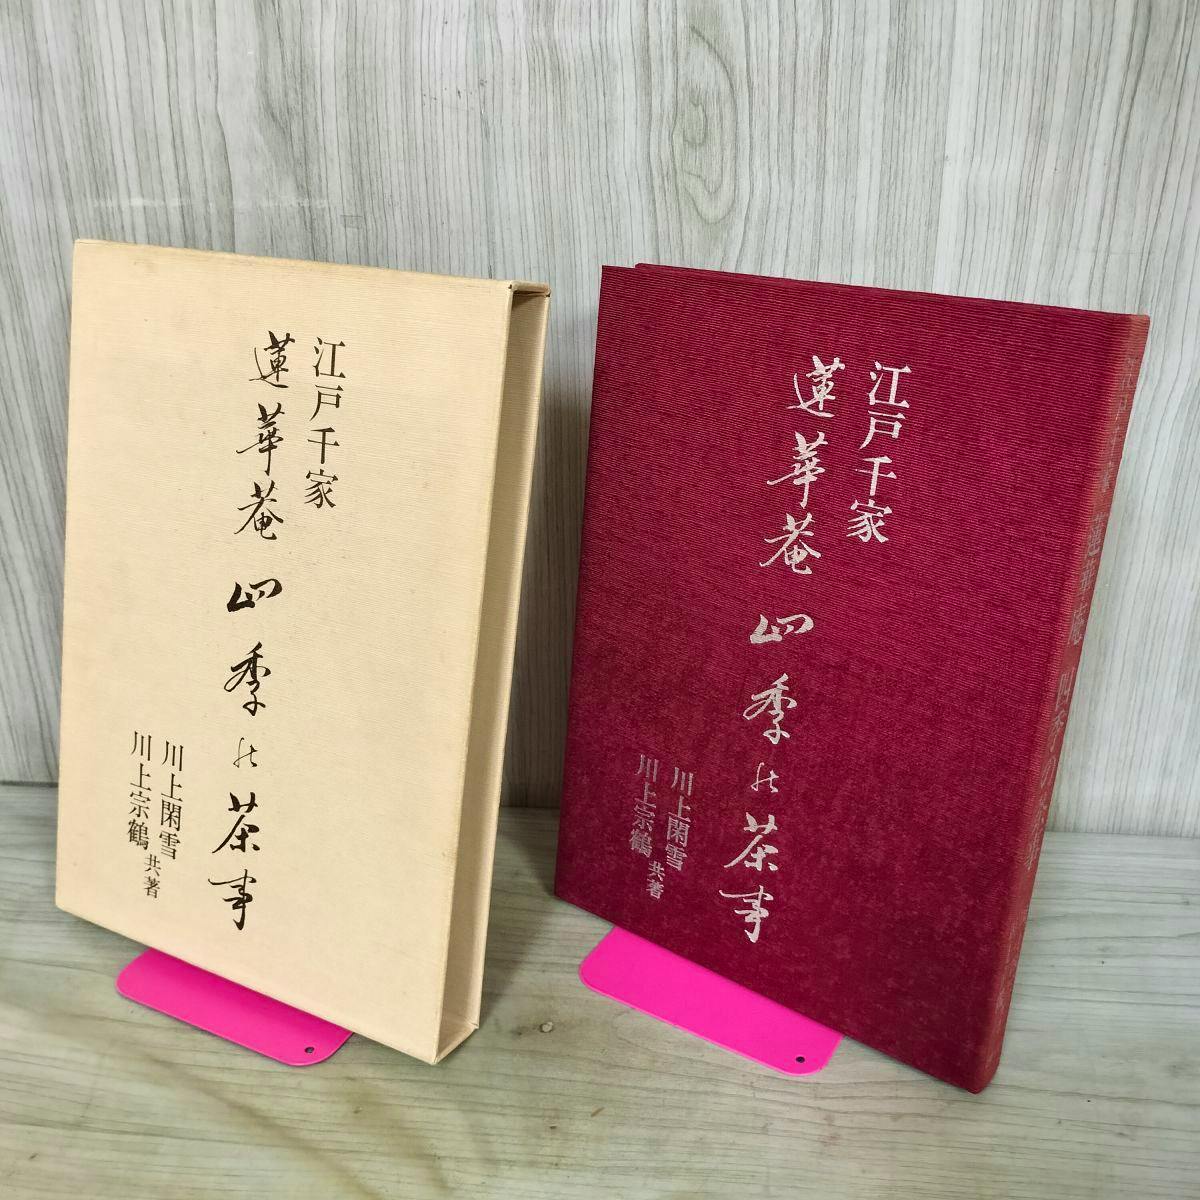 江戸千家
蓮華菴 四季の茶事
川上閑雪
川上宗鶴 共著
江戸千家
蓮華菴 四季の茶事
川上閑雪
川上宗鶴 共著
江戸千家 蓮華菴 四季の茶事